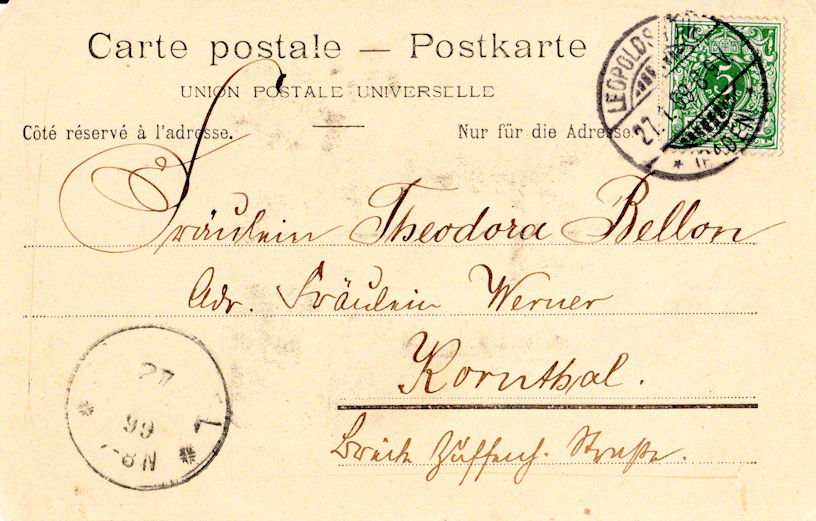 Carte postale — Postkarte
UNION POSTALE UNIVERSELLE
Côté réservé à l'adresse.
Nur für die Adresse.
5
27.1.99
(BADEN)
Fräulein Theodora Bellon
Adr. Fräulein Werner
Kornthal.
Zuffenh. Straße.
27
1
99
7-8N